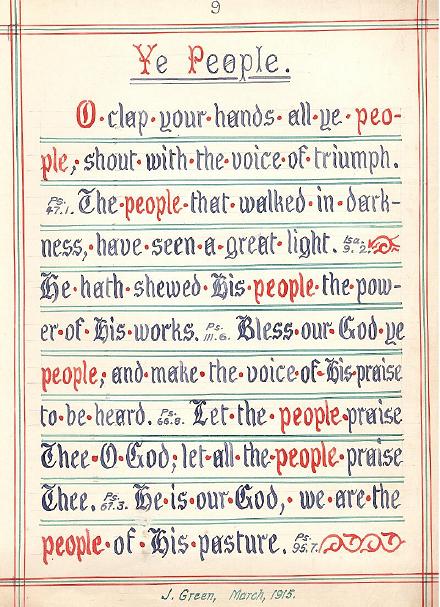 9
Ye People.
O·clap·your·hands·all·ye·peo-
ple,·shout·with·the·voice·of·triumph.
Ps. 47.1. The·people·that·walked·in·dark-
ness,·have·seen·a·great·light. Isa. 9.2.
He·hath·shewed·His·people·the·pow-
er·of·His·works. Ps. 111.6. Bless·our·God·ye
people;·and·make·the·voice·of·His·praise
to·be·heard. Ps. 66.8. Let·the·people·praise
Thee·O·God;·let·all·the·people·praise
Thee. Ps. 67.3. He·is·our·God,·we·are·the
people·of·His·pasture. Ps. 95.7.
J. Green, March, 1915.